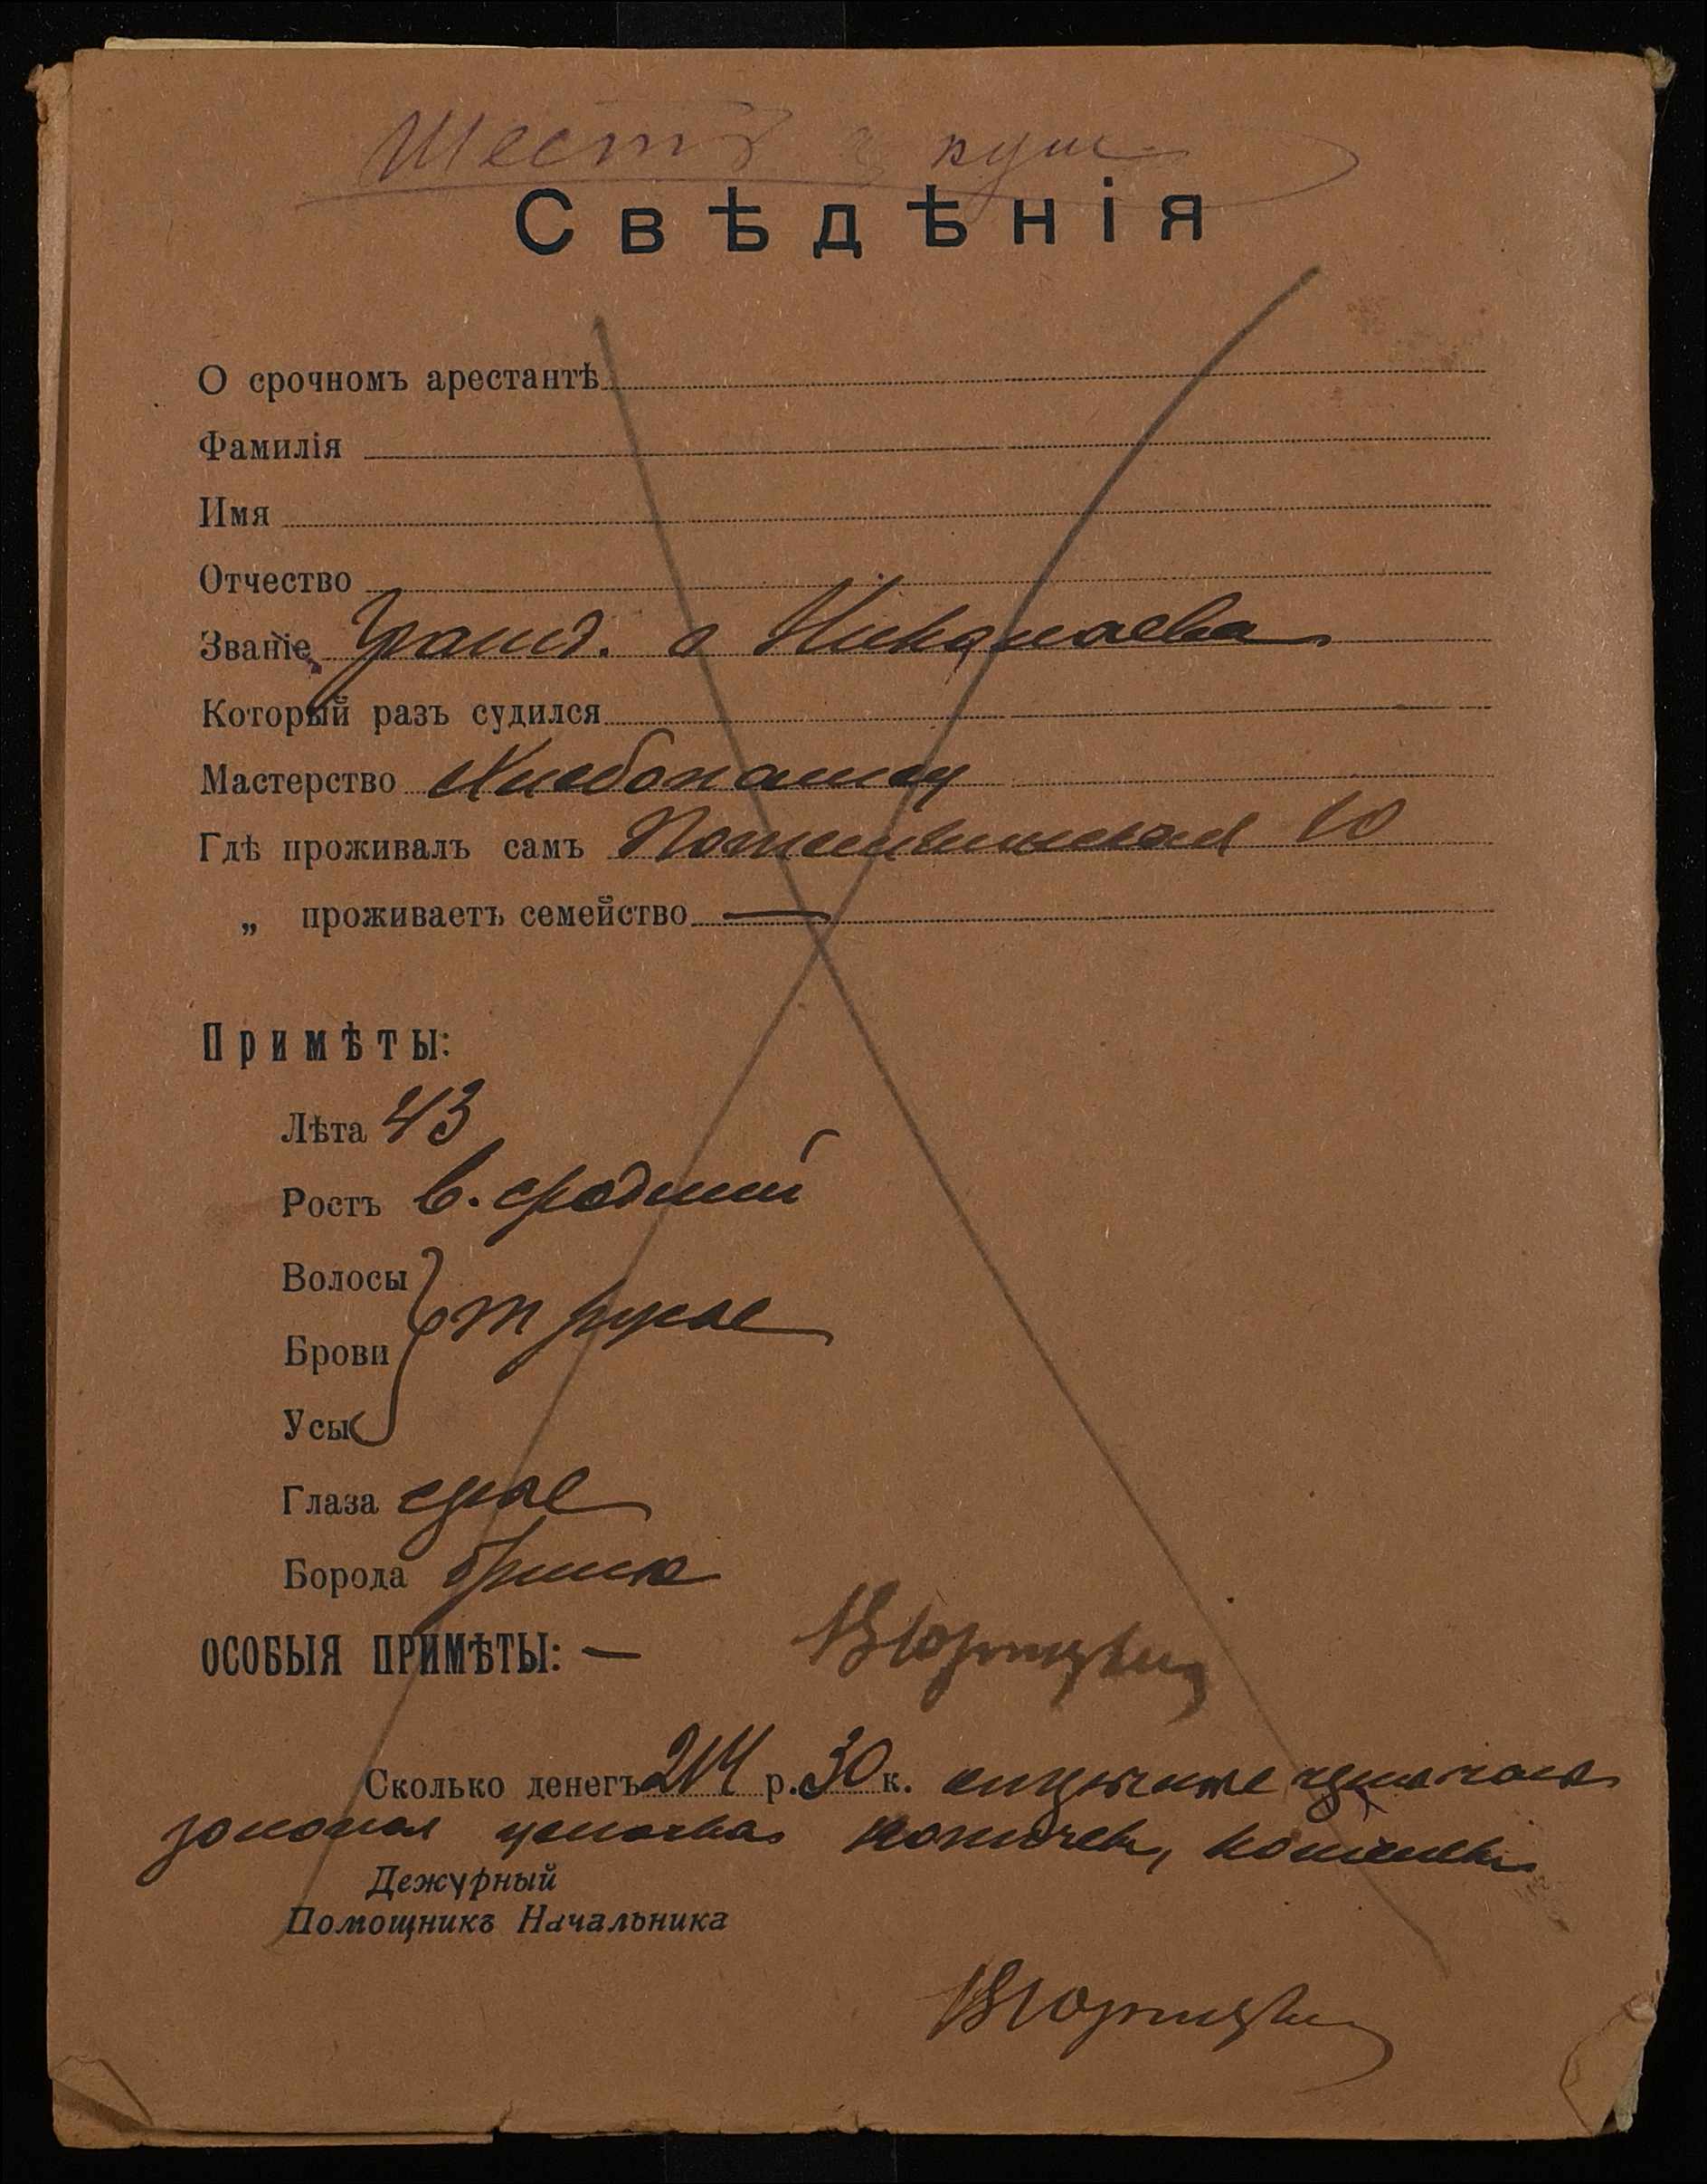 Шесть
Свѣдѣнія
О срочномъ арестантѣ
Фамилія
Имя
Отчество
Званіе Гражд. г Николаева
Который разъ судился
Мастерство Хлебопашец
Гдѣ проживалъ самъ Потемкинская 10
„ проживаетъ семейство —
Примѣты:
Лѣта 43
Ростъ в. средний
Волосы
т русые
Брови
Усы
Глаза серые
Борода бритая
ОСОБЫЯ ПРИМѢТЫ: —
Сколько денегъ 214 р. 30 к.
золотая цепочка, кошелек
Дежурный
Помощникъ Начальника